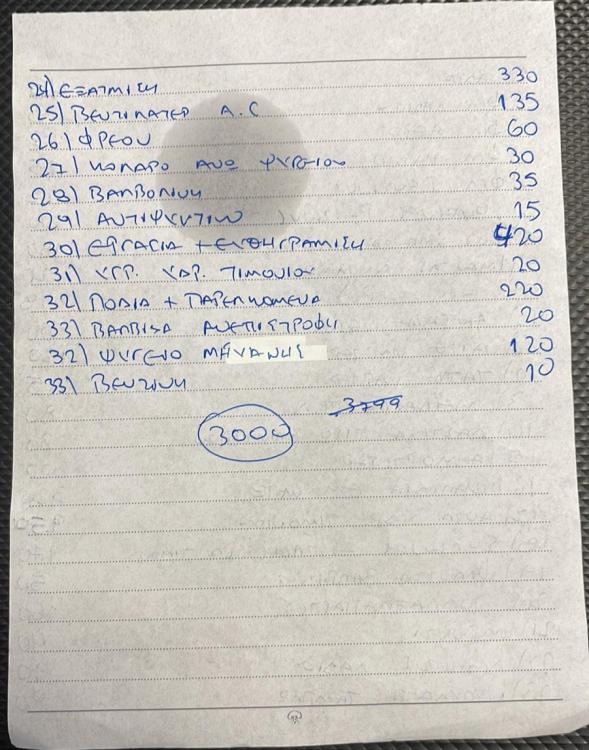 24) ΕΞΑΤΜΙΣΗ 330
25) ΒΕΝΤΙΛΑΤΕΡ A.C 135
26) ΦΡΕΟΝ 60
27) ΚΟΛΑΡΟ ΑΝΩ ΨΥΓΕΙΟΥ 30
28) ΒΑΛΒΟΛΙΝΗ 35
29) ΑΝΤΙΨΥΚΤΙΚΟ 15
30) ΕΡΓΑΣΙΑ + ΕΥΘΗΓΡΑΜΙΣΗ 420
31) ΥΓΡ. ΥΔΡ. ΤΙΜΟΝΙΟΥ 20
32) ΠΟΔΙΑ + ΠΑΡΕΛΚΟΜΕΝΑ 220
33) ΒΑΛΒΙΔΑ ΑΝΕΠΙΣΤΡΟΦΗ 20
32) ΨΥΓΕΙΟ ΜΗΧΑΝΗΣ 120
33) ΒΕΝΖΙΝΗ 10
3799
3000